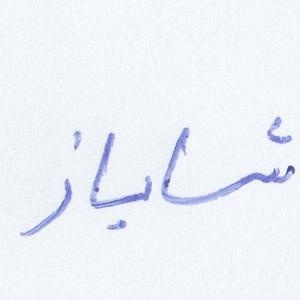 شاياز